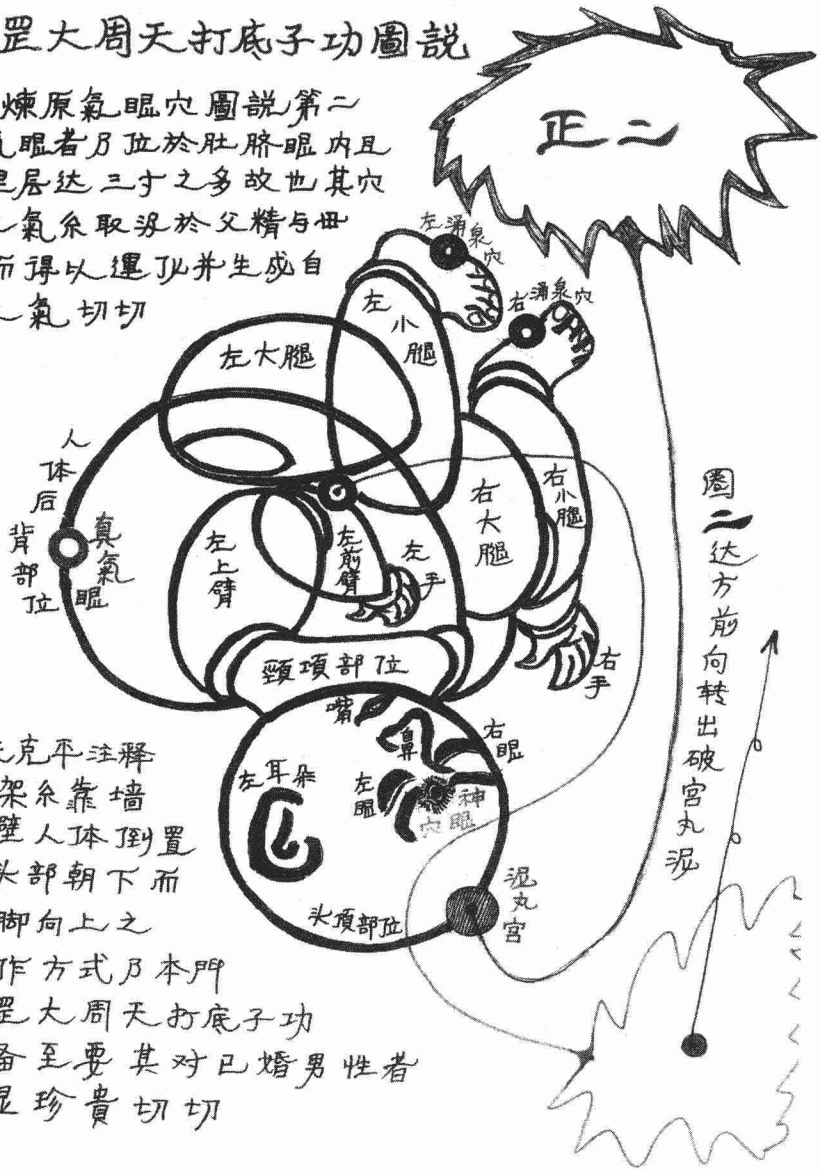 罡大周天打底子功圖説
煉原氣眼穴圖説第二
眼者乃位於肚脐眼内且
层达三寸之多故也其穴
氣系取汲於父精与毌
而得以運化并生成自
氣切切
正二
左涌泉穴
右涌泉穴
左小腿
左大腿
人体后背部位
真氣眼
左上臂
左前臂
左手
右大腿
右小腿
右手
頸項部位
嘴
鼻
右眼
左眼
神眼穴
左耳朵
头頂部位
泥丸宫
圈二达方前向转出破宫丸泥
克平注释
架系靠墙
壁人体倒置
头部朝下而
脚向上之
作方式乃本門
罡大周天打底子功
备至要其对已婚男性者
显珍貴切切